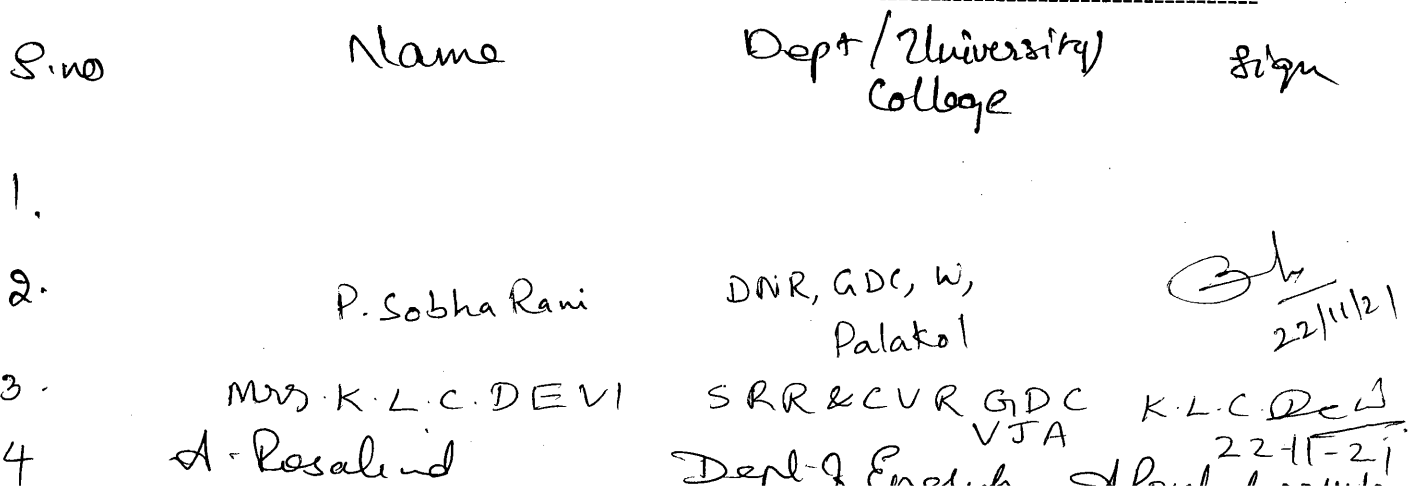 S.no Name Dept/University/
College Sign
1.
2. P. Sobha Rani DNR, GDC, W,
Palakol 22/11/21
3. Mrs. K. L. C. DEVI SRR & CVR GDC K.L.C. Devi
VJA 22-11-21
4 A. Rosalind Dept of English